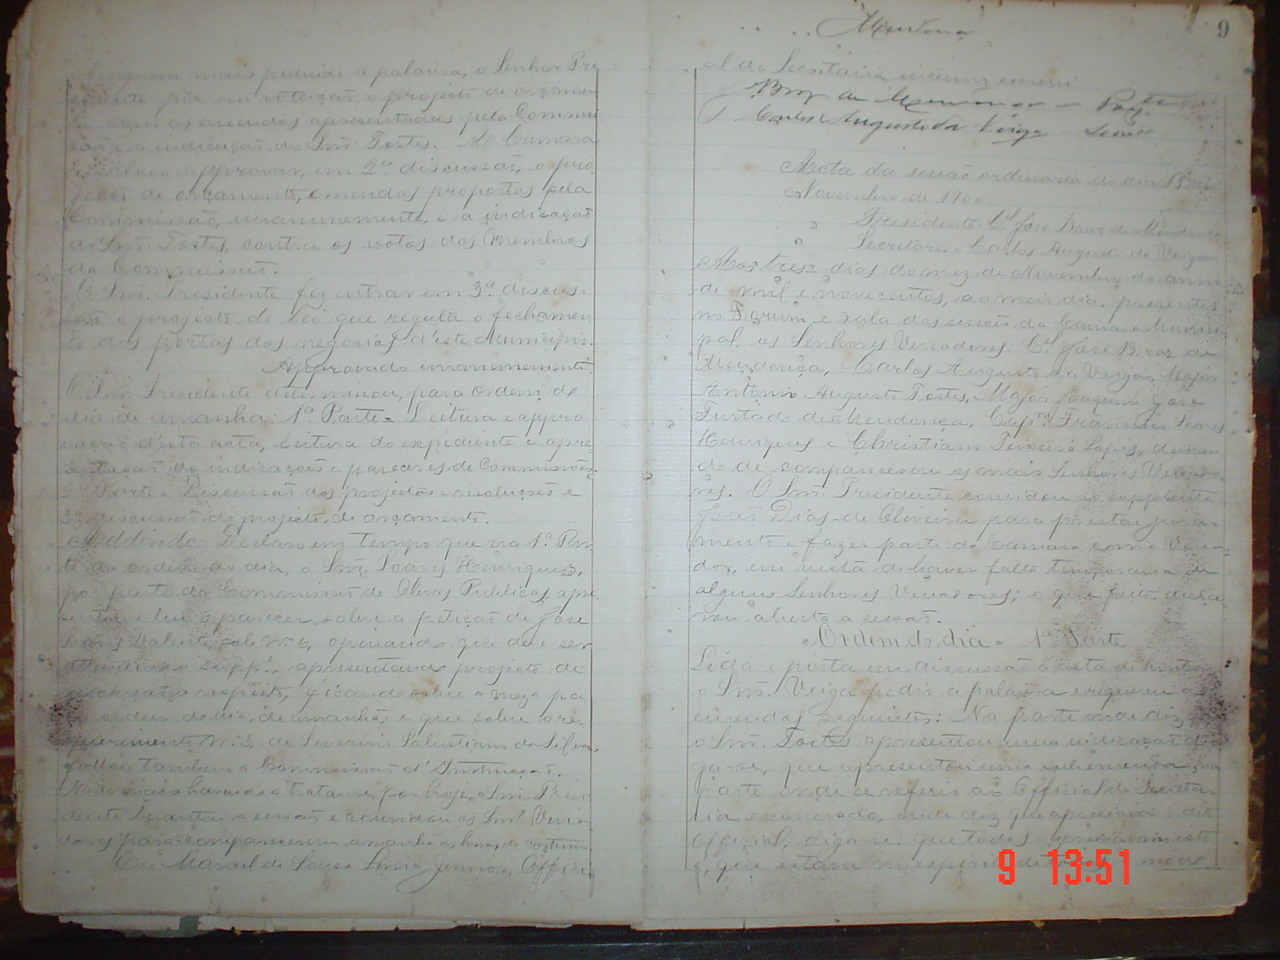 mais pedindo a palavra, o Senhor Pre
sidente poz em votação o projecto de orçamen
to com as emendas apresentadas pela Commis
são e a indicação do Snr. Tostes. A Camara
approvou, em 2ª discussão, o pro
jecto de orçamento, emendas propostas pela
Commissão, unanimemente, e a indicação
do Snr. Tostes, contra os votos dos Membros
da Commissão.
O Snr. Presidente fez entrar em 3ª discus-
são o projecto de lei que regula o fechamen
to das portas dos negocios d'este Municipio.
Approvado unanimemente.
O Snr. Presidente determinou, para ordem do
dia de amanhã: 1ª Parte = Leitura e appro
vação d'esta acta, leitura do expediente e apre
sentação de indicações e pareceres de Commissões.
2ª Parte = Discussão dos projectos e resoluções e
3ª discussão do projecto de orçamento.
Addendo: Declaro em tempo que na 1ª Par
te da ordem do dia, o Snr. Soares Henriques,
por parte da Commissão de Obras Publicas, apre
sentou e leu o parecer sobre a petição de José
sob nº 6, opinando que deve ser
attendido o supp.e, apresentando projecto de
resolução a respeito, ficando sobre a meza pa
ra ordem do dia de amanhã; e que sobre o re-
querimento nº 3 de Severino Salustiano da Silva,
fallou tambem a Commissão d'Instrucção.
Nada mais havendo a tratar-se, por hoje, o Snr. Presi
dente levantou a sessão e convidou os Snrs. Verea
dores para comparecerem amanhã as horas do costume.
Eu Manoel de Sousa Lima Junior, Offici
9
Mendonça
al da Secretaria, escrevi.
Braz de Mendonça - Pres.te
Carlos Augusto da Veiga Secrio
Acta da sessão ordinaria do dia 13 de
Novembro de 1900.
Presidente Cel. José Braz de Mendonça
Secretario Carlos Augusto da Veiga
Aos trese dias do mez de Novembro do anno
de mil e novecentos, ao meio dia, presentes
no Forum e sala das sessões da Camara Munici
pal os Senhores Vereadores: Cel. José Braz de
Mendonça, Carlos Augusto da Veiga, Major
Antonio Augusto Tostes, Major Joaquim José
Furtado de Mendonça, Capm. Francisco Soares
Henriques e Christiam Teixeira Lopes, deixan
do de comparecerem os mais Senhores Vereado-
res. O Snr. Presidente convidou ao supplente
José Dias de Oliveira para prestar jura-
mento e fazer parte da Camara como Verea-
dor, em vista de haver falta temporaria de
alguns Senhores Vereadores; o que feito, decla
rou aberta a sessão.
Ordem do dia - 1ª Parte
Lida e posta em discussão a acta de hontem
o Snr. Veiga pediu a palavra e requereu as
emendas seguintes: Na parte onde diz que
o Snr. Tostes apresentou uma indicação, di-
ga-se, que apresentou uma sub-emenda; na
parte onde se refere ao Official da Secreta
ria exonerado, onde diz que apreciava o dito
Official, diga-se: que todos apreciavam este
e, que estava no espirito de
9 13:51